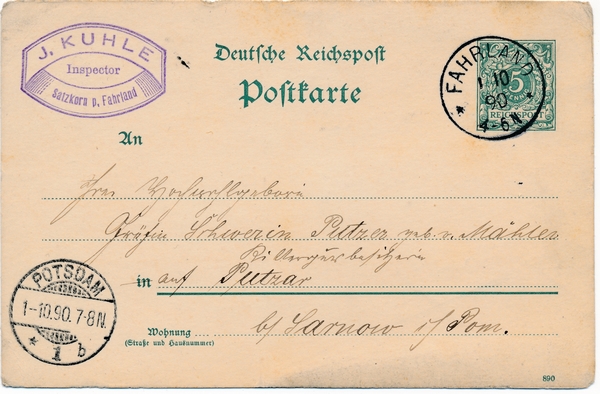 J. KUHLE
Inspector
Satzkorn p. Fahrland
Deutsche Reichspost
Postkarte
FAHRLAND
1 10
90
4-6N
5
PFENNIG
REICHSPOST
An
Hochwohlgeboren
Gräfin Schwerin Putzar geb. v.
Rittergutsbesitzerin
in auf Putzar
POTSDAM
1-10.90.7-8N.
* 1 b
b/ Sarnow i/ Pom.
Wohnung
(Straße und Hausnummer)
890